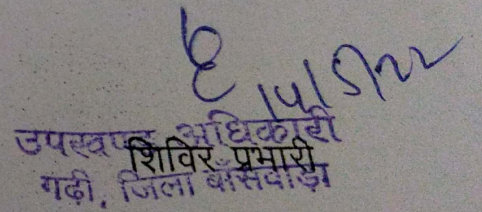 14/5/22
उपखण्ड अधिकारी
शिविर प्रभारी
गढ़ी, जिला बाँसवाड़ा